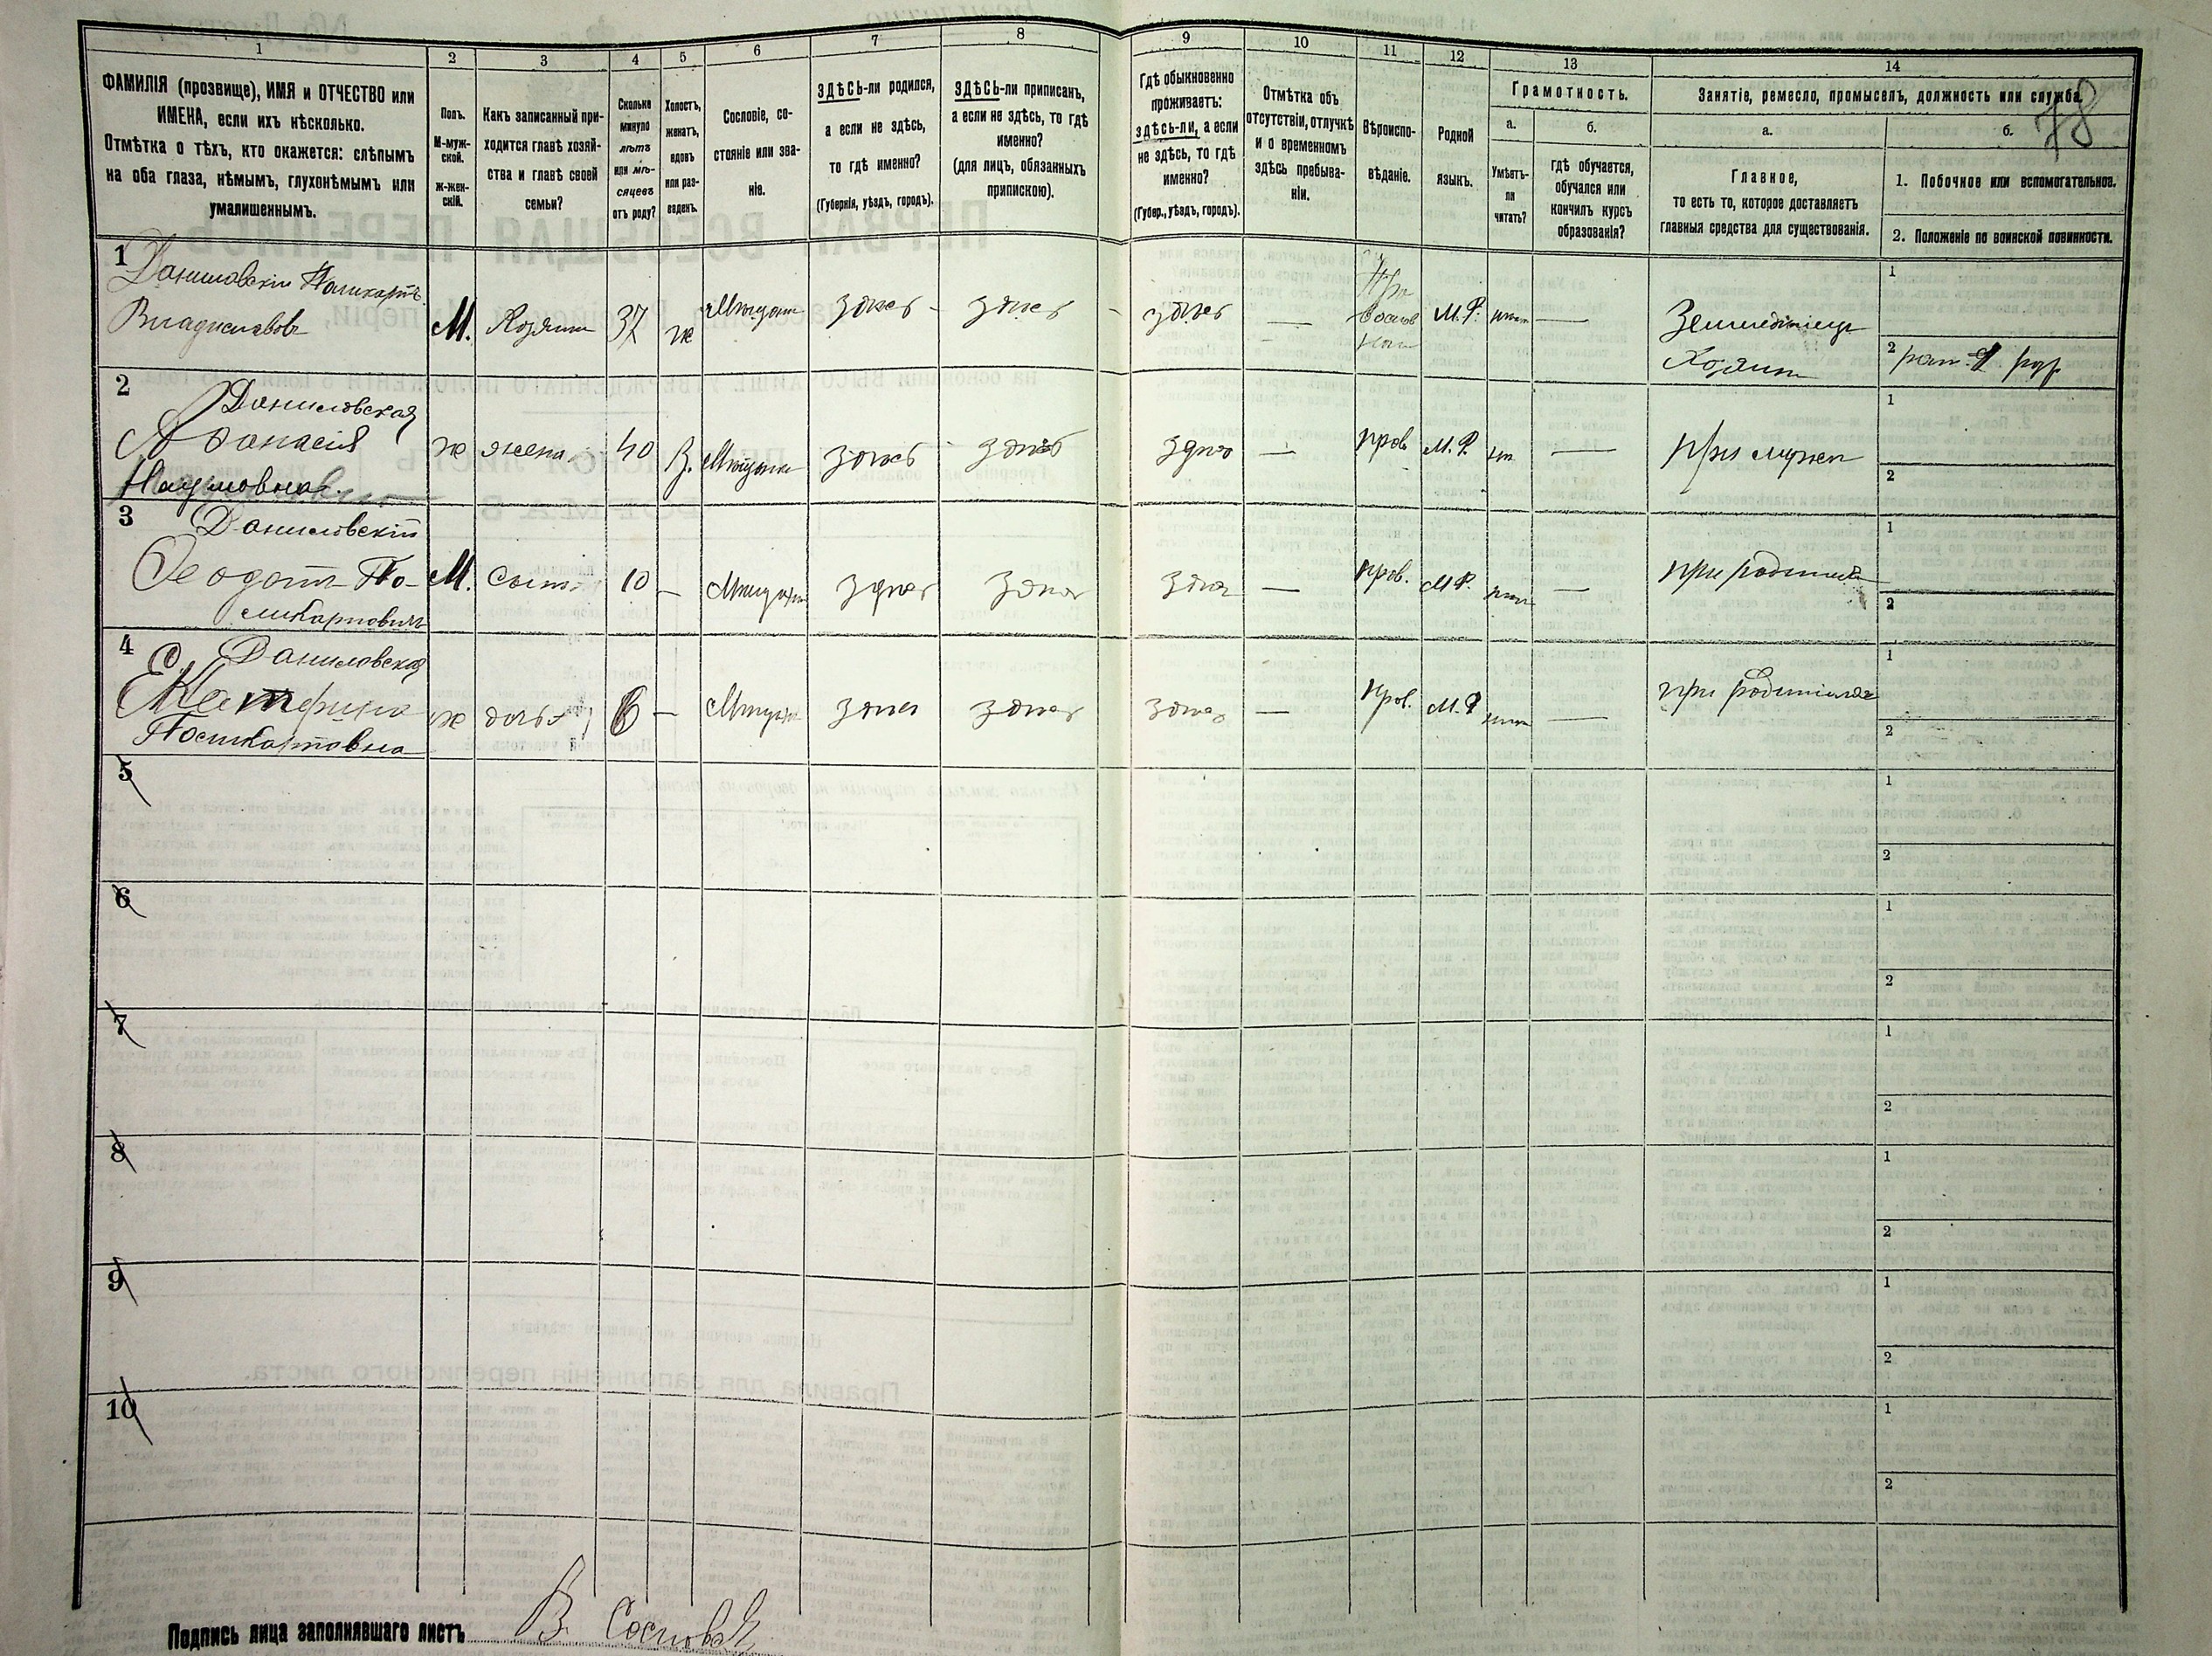 1 2 3 4 5 6 7 8 9 10 11 12 13 14
ФАМИЛІЯ (прозвище), ИМЯ и ОТЧЕСТВО или
ИМЕНА, если ихъ нѣсколько.
Отмѣтка о тѣхъ, кто окажется: слѣпымъ
на оба глаза, нѣмымъ, глухонѣмымъ или
умалишеннымъ.
Полъ.
М-муж-
ской.
ж-жен-
скій.
Какъ записанный при-
ходится главѣ хозяй-
ства и главѣ своей
семьи?
Сколько
минуло
лѣтъ
или мѣ-
сяцевъ
отъ роду?
Холостъ,
женатъ,
вдовъ
или раз-
веденъ.
Сословіе, со-
стояніе или зва-
ніе.
ЗДѢСЬ-ли родился,
а если не здѣсь,
то гдѣ именно?
(Губернія, уѣздъ, городъ).
ЗДѢСЬ-ли приписанъ,
а если не здѣсь, то гдѣ
именно?
(для лицъ, обязанныхъ
припискою).
Гдѣ обыкновенно
проживаетъ:
здѣсь-ли, а если
не здѣсь, то гдѣ
именно?
(Губер., уѣздъ, городъ).
Отмѣтка объ
отсутствіи, отлучкѣ
и о временномъ
здѣсь пребыва-
ніи.
Вѣроиспо-
вѣданіе.
Родной
языкъ.
Грамотность.
а.
Умѣетъ-
ли
читать?
б.
гдѣ обучается,
обучался или
кончилъ курсъ
образованія?
Занятіе, ремесло, промыселъ, должность или служба.
78
а.
Главное,
то есть то, которое доставляетъ
главныя средства для существованія.
б.
1. Побочное или вспомогательное.
2. Положеніе по воинской повинности.
1
Даниловскій Поликарпъ
Владиславовъ
М. Хозяинъ 37 ж Мѣщан здѣсь здѣсь здѣсь —
Пра
восла
М. Р. —
Земледѣлецъ
Хозяинъ
1
2
2
Даниловская
Афанасія
Наумовна
ж жена 40 З. Мѣщанка здѣсь здѣсь здѣсь — прав М. Р. — при мужѣ
1
2
3
Даниловскій
Ѳеодотъ По-
ликарповичъ
М. Сынъ 10 — Мѣщан здѣсь здѣсь здѣсь — прав. М. Р. — при родител
1
2
4
Даниловская
Екатерина
Поликарповна
ж дочь 6 — Мѣщан здѣсь здѣсь здѣсь — прав. М. Р — при родителях
1
2
5
1
2
6
1
2
7
1
2
8
1
2
9
1
2
10
1
2
Подпись лица заполнявшаго листъ В.